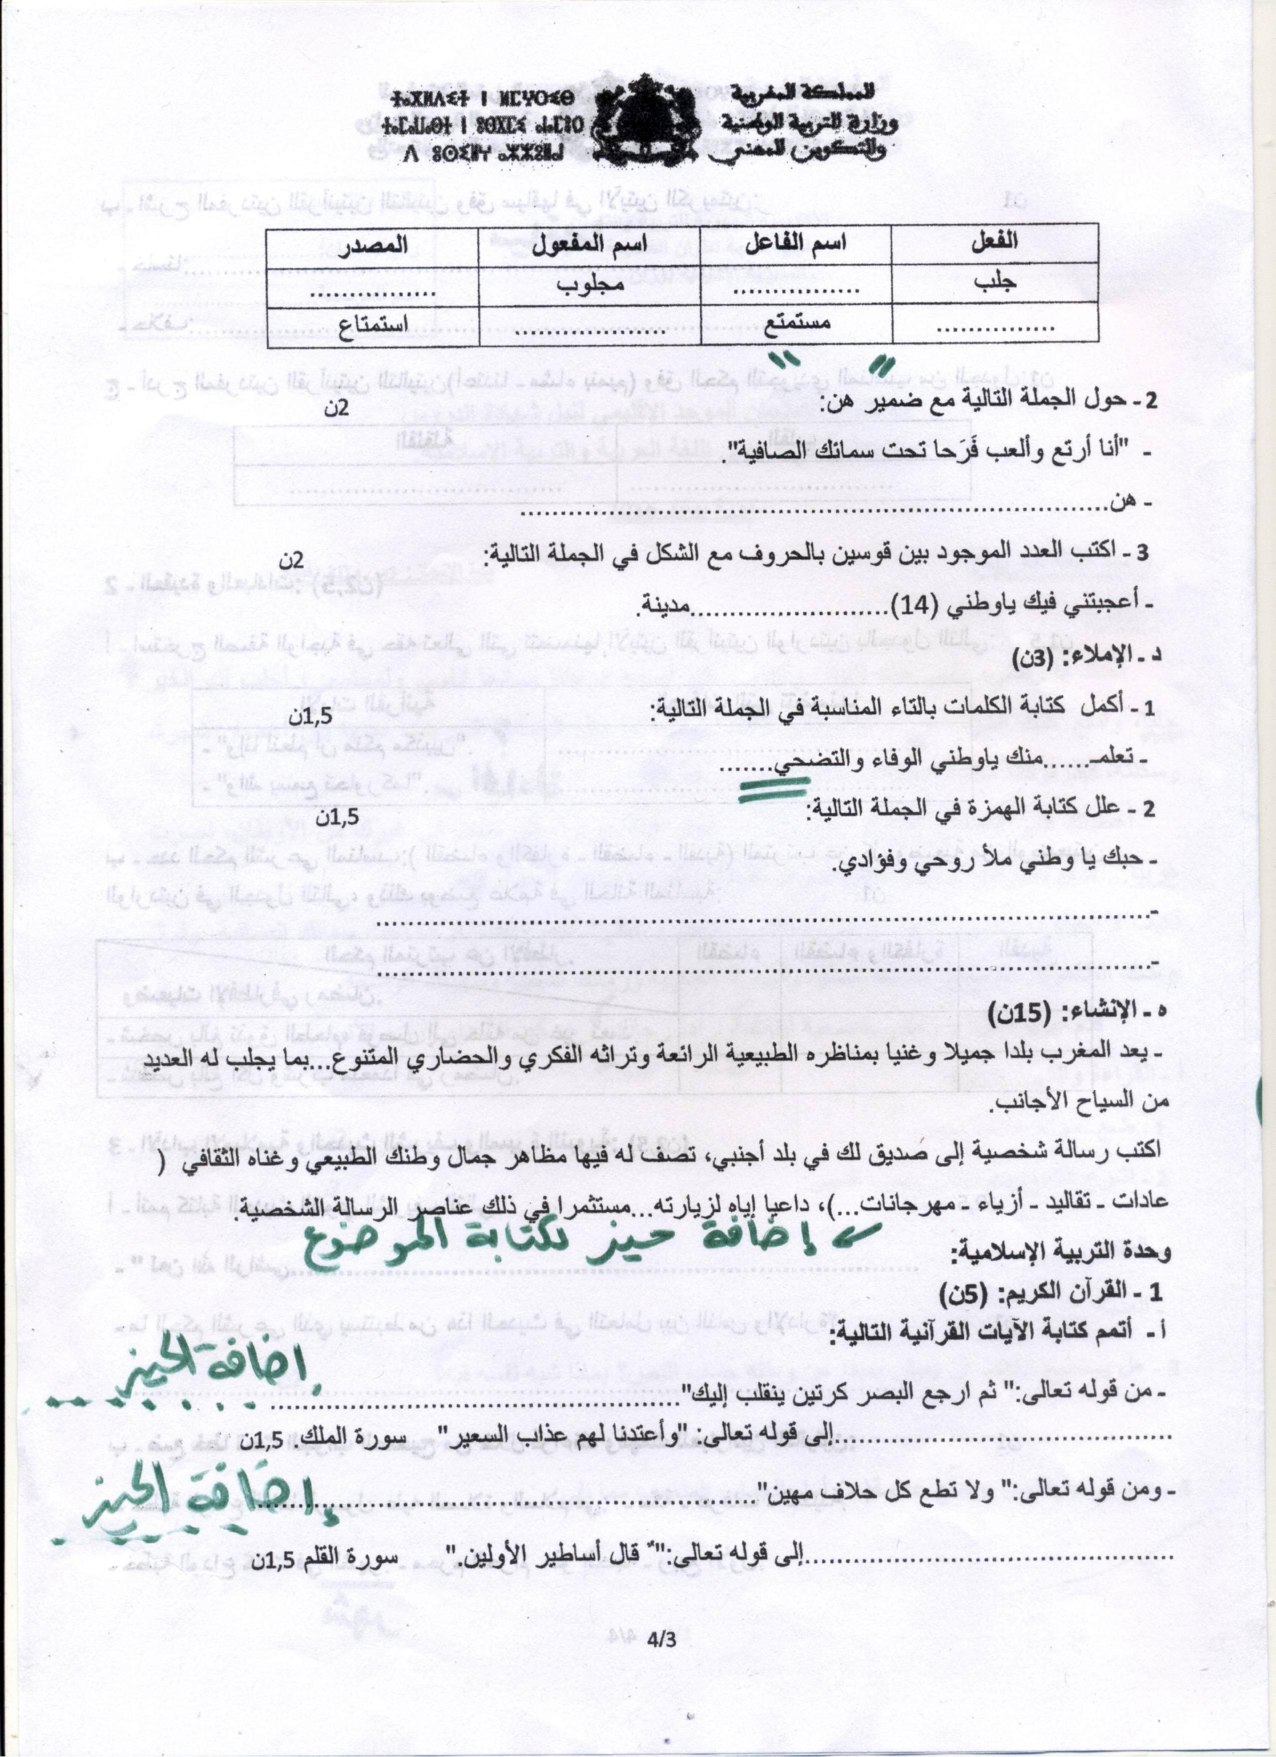 المملكة المغربية
وزارة التربية الوطنية
والتكوين المهني
ⵜⴰⴳⵍⴷⵉⵜ ⵏ ⵍⵎⵖⵔⵉⴱ
ⵜⴰⵎⴰⵡⴰⵙⵜ ⵏ ⵓⵙⴳⵎⵉ ⴰⵏⴰⵎⵓⵔ
ⴷ ⵓⵙⵎⵓⵜⵜⴳ ⴰⵣⵣⵓⵍⴰⵏ
الفعل اسم الفاعل اسم المفعول المصدر
جلب ................ مجلوب ................
............... مستمتع ................... استمتاع
2 ـ حول الجملة التالية مع ضمير هن: 2ن
ـ "أنا أرتع وألعب فَرَحا تحت سمائك الصافية".
ـ هن...........................................................................
3 ـ اكتب العدد الموجود بين قوسين بالحروف مع الشكل في الجملة التالية: 2ن
ـ أعجبتني فيك ياوطني (14).........................مدينة.
د ـ الإملاء: (3ن)
1 ـ أكمل كتابة الكلمات بالتاء المناسبة في الجملة التالية: 1,5ن
ـ تعلمـ......منك ياوطني الوفاء والتضحي.......
2 ـ علل كتابة الهمزة في الجملة التالية: 1,5ن
ـ حبك يا وطني ملأ روحي وفؤادي.
ـ...................................................................................................
ـ...................................................................................................
ه ـ الإنشاء: (15ن)
ـ يعد المغرب بلدا جميلا وغنيا بمناظره الطبيعية الرائعة وتراثه الفكري والحضاري المتنوع...بما يجلب له العديد
من السياح الأجانب.
اكتب رسالة شخصية إلى صَديق لك في بلد أجنبي، تصف له فيها مظاهر جمال وطنك الطبيعي وغناه الثقافي (
عادات ـ تقاليد ـ أزياء ـ مهرجانات...)، داعيا إياه لزيارته...مستثمرا في ذلك عناصر الرسالة الشخصية.
إضافة حيز لكتابة الموضوع
وحدة التربية الإسلامية:
1 ـ القرآن الكريم: (5ن)
أ ـ أتمم كتابة الآيات القرآنية التالية:
إضافة الحيز
ـ من قوله تعالى:" ثم ارجع البصر كرتين ينقلب إليك"....................................................
...........................................إلى قوله تعالى: "وأعتدنا لهم عذاب السعير" سورة الملك. 1,5ن
إضافة الحيز
ـ ومن قوله تعالى:" ولا تطع كل حلاف مهين"................................................................
...............................................إلى قوله تعالى:" قال أساطير الأولين." سورة القلم 1,5ن
4/3